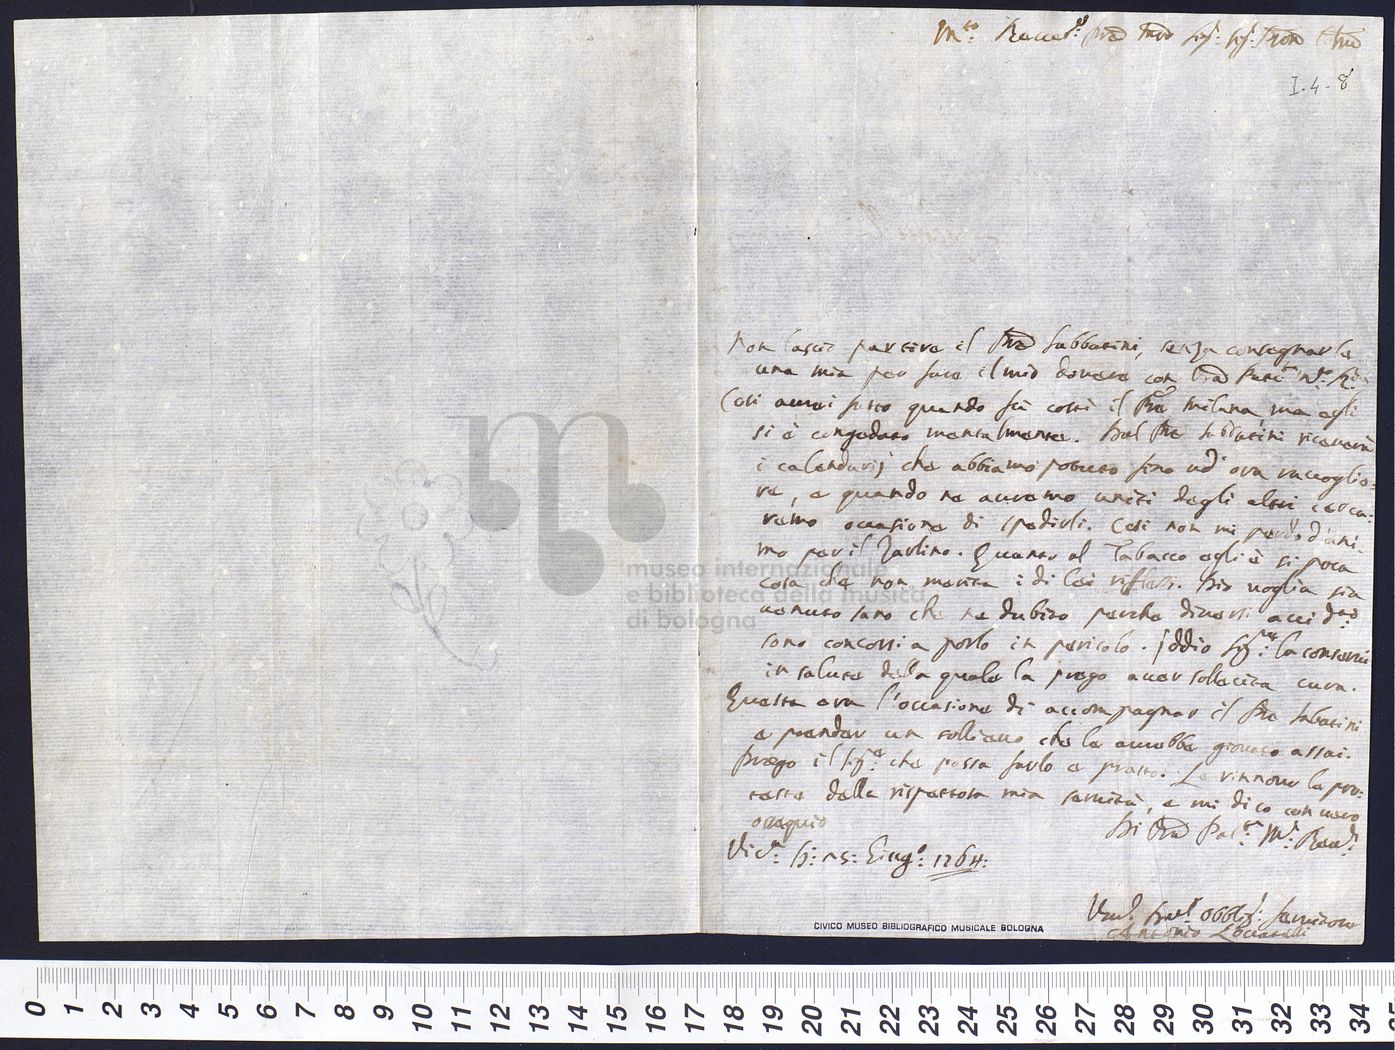 M.to Rever.do Pre Pre Sig.r Sig.r Pron Col.mo
I.4-8
Non lascio partire il Pre Sabbatini, senza consegnarle
una mia per fare il mio dovere con V.ra Pat.tà M.to R.da
Così avrei fatto quando fù costì il Pre Milana, ma egli
si è congedato mentalmente. Dal Pre Sabbatini riceverà
i calendarij che abbiamo potuto fino ad ora raccoglie-
re, e quando ne avremo uniti degli altri cerca-
remo occasione di spedirli. Così non mi perdo d'ani-
mo per il Zarlino. Quanto al Tabacco egli è sì poca
cosa che non merita i di Lei riflessi. Dio voglia sia
venuto sano che ne dubito perche diversi accid.ti
sono concorsi a porlo in pericolo. Iddio Sig.re la conservi
in salute della quale la prego aver sollecita cura.
Questa era l'occasione di accompagnar il Pre Sabatini
e prender un sollievo che le avrebbe giovato assai.
Prego il Sig.re che possa farlo e presto. Le rinnovo la pro-
testa della rispettosa mia servitù, e mi dico con vero
ossequio
Di V.ra Pat.tà M.to Rev.da
Vic.a li: 25: Giug.o 1764:
Um.o Dev.o Obblig.o Servitore
Antonio Locatelli
CIVICO MUSEO BIBLIOGRAFICO MUSICALE BOLOGNA
museo internazionale
e biblioteca della musica
di bologna
0 1 2 3 4 5 6 7 8 9 10 11 12 13 14 15 16 17 18 19 20 21 22 23 24 25 26 27 28 29 30 31 32 33 34